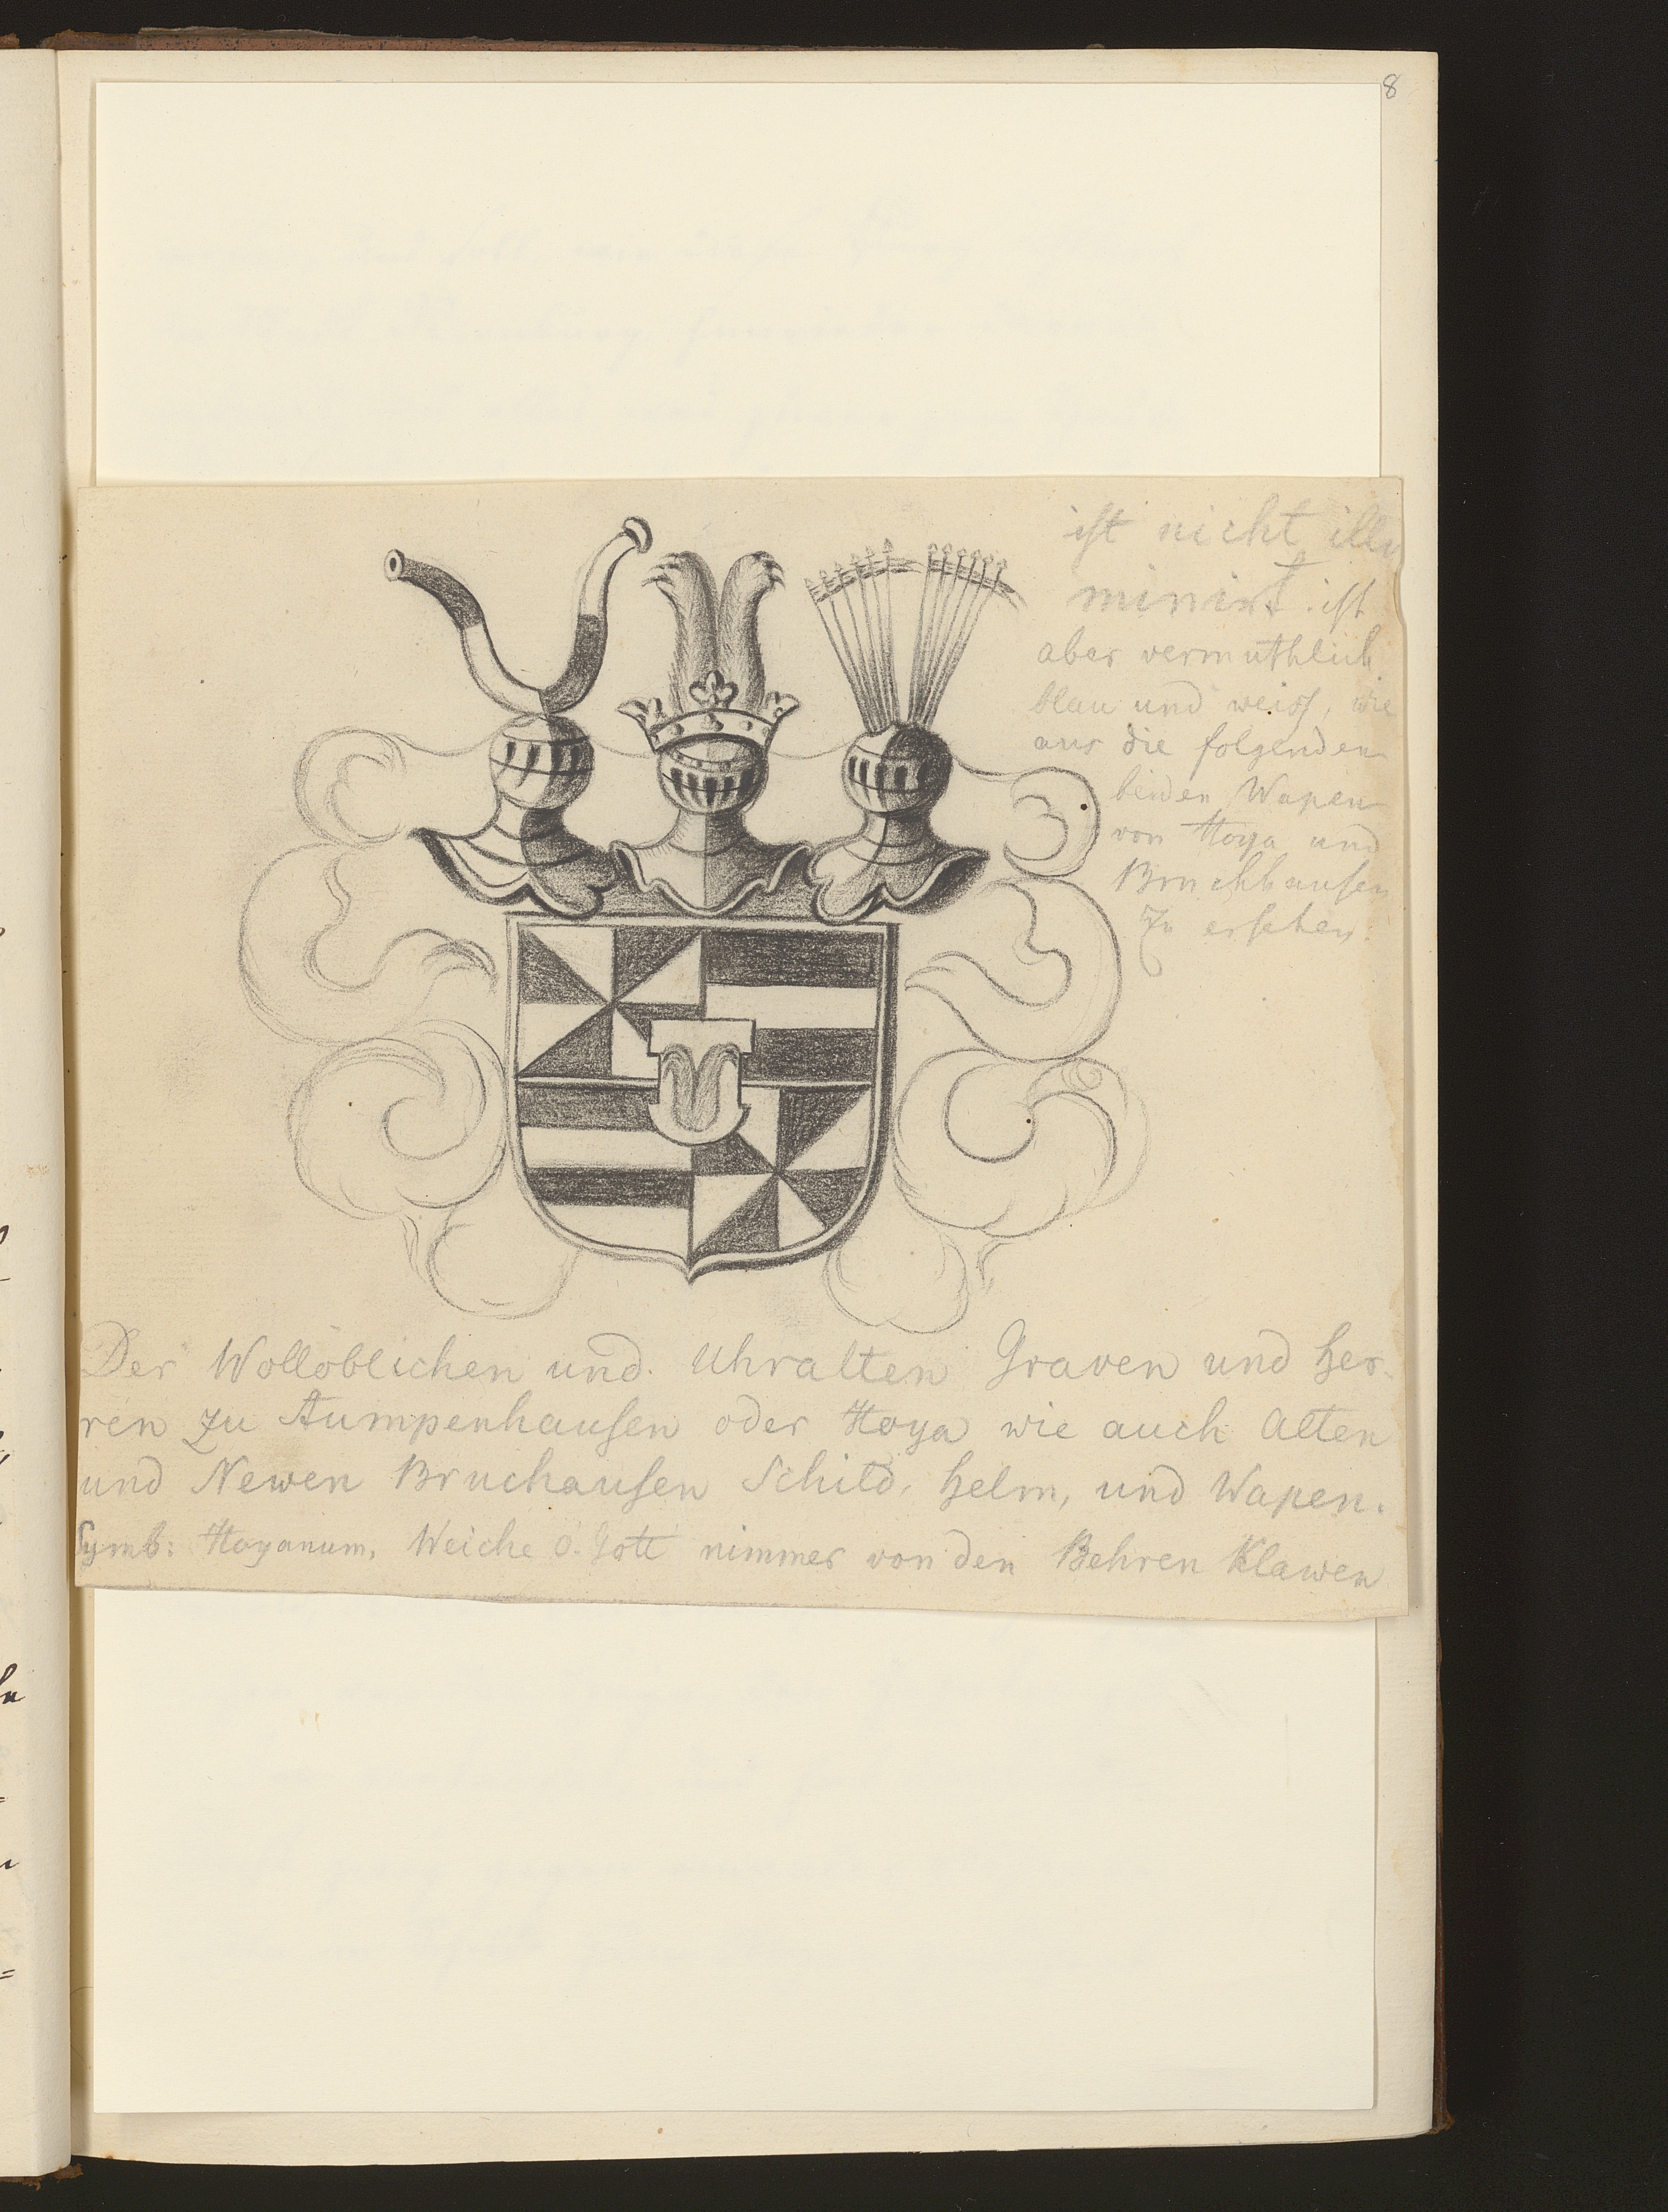 8
ist nicht illu
minirt. ist
aber vermuthlich
blau und weiss, wie
aus die folgenden
beiden Wapen
von Hoya und
Bruchhausen
Zu ersehen.
Der Wollöblichen und Uhralten Graven und Her-
ren zu Stumpenhausen oder Hoya wie auch Alten
und Newen Bruchausen Schild, Helm, und Wapen.
Symb: Hoyanum. Weiche o. Gott nimmer von den Behren Klawen